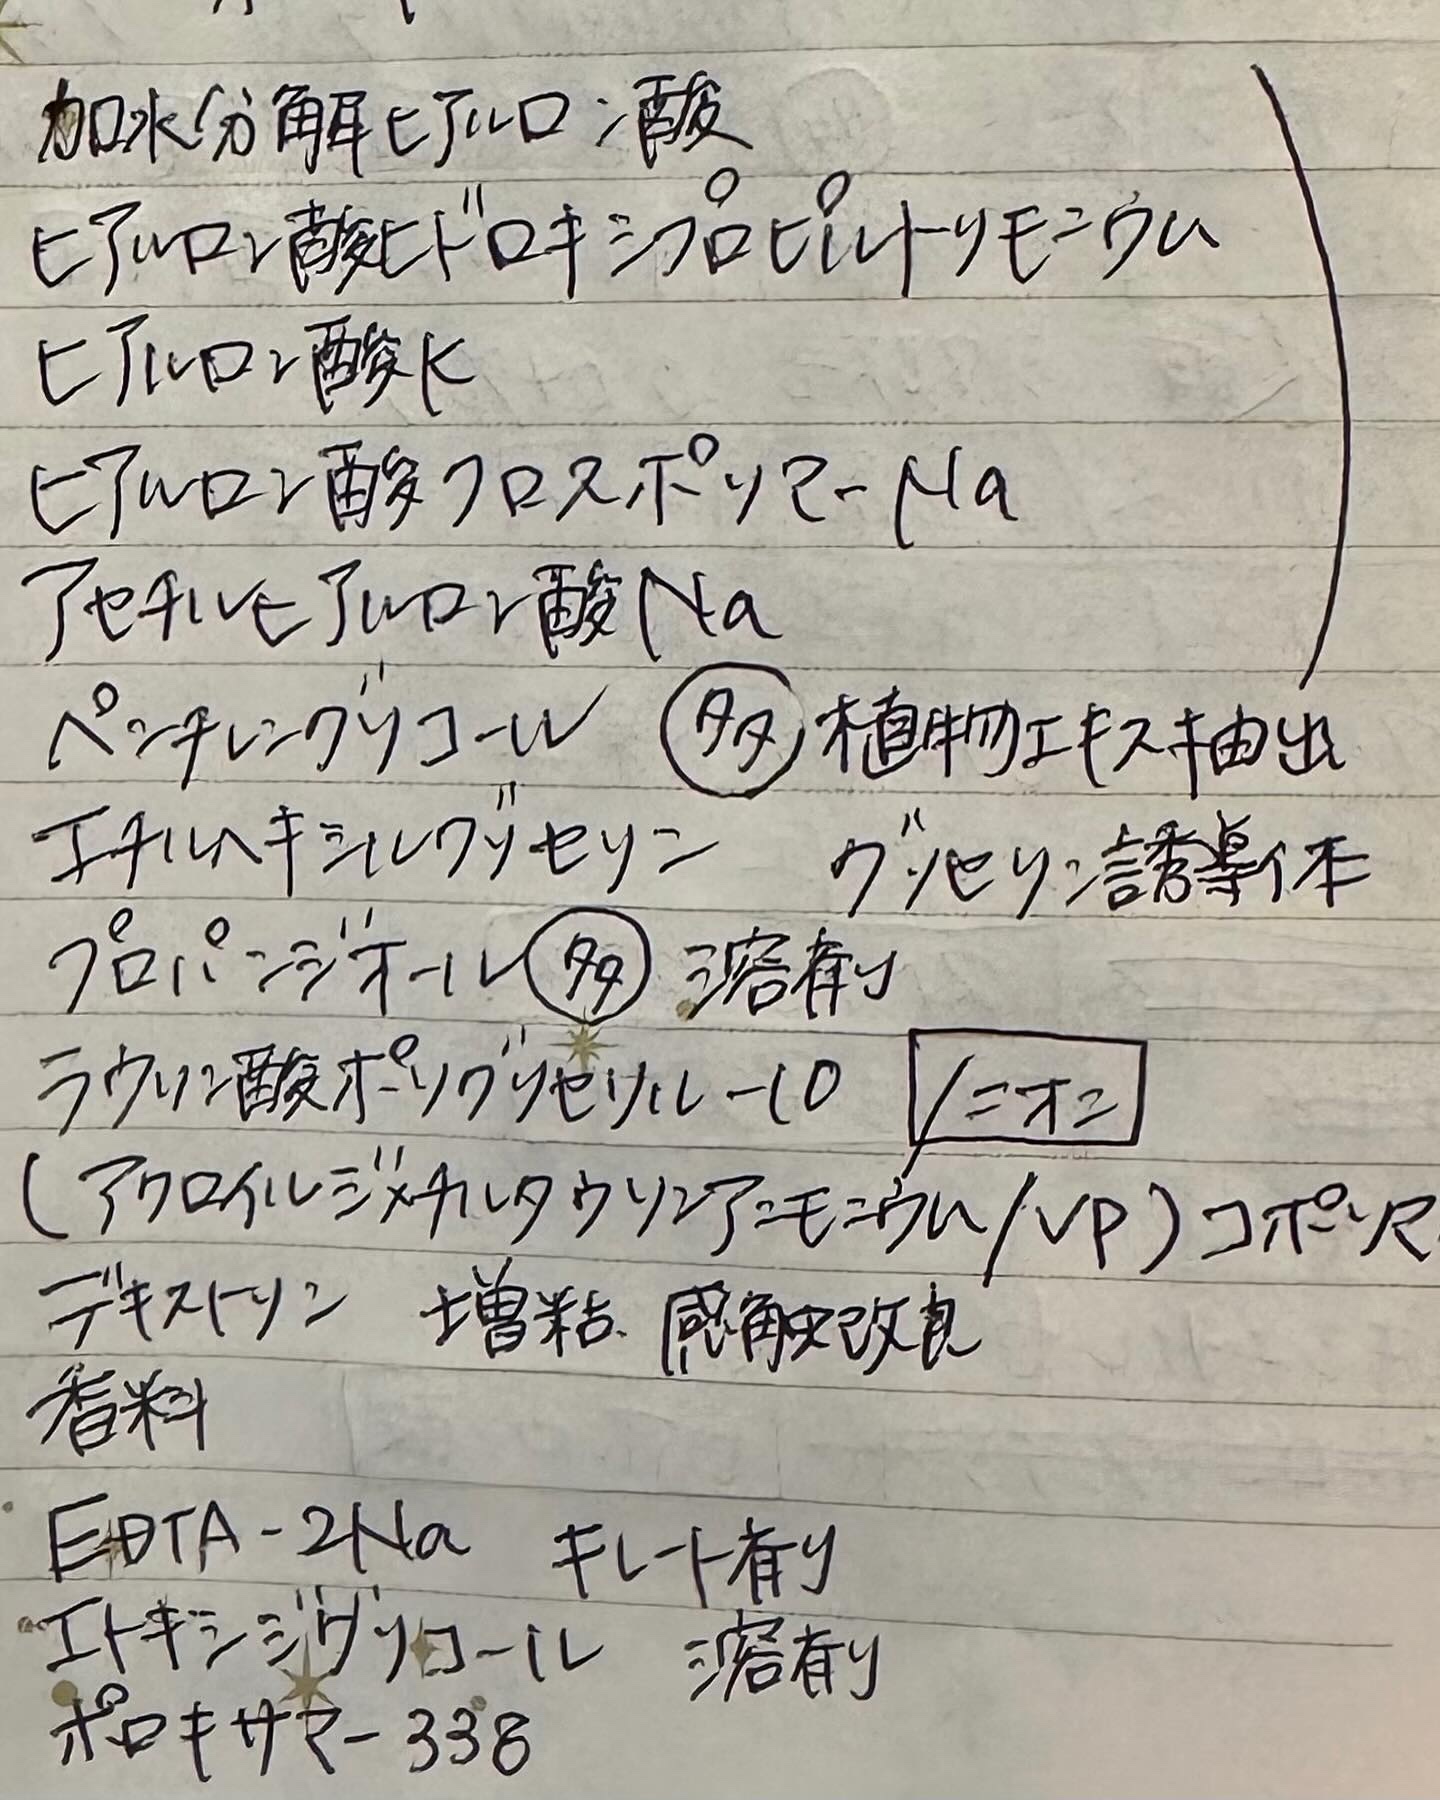 加水分解ヒアルロン酸
ヒアルロン酸ヒドロキシプロピルトリモニウム
ヒアルロン酸K
ヒアルロン酸クロスポリマーNa
アセチルヒアルロン酸Na
ペンチレングリコール 多 植物エキス抽出
エチルヘキシルグリセリン グリセリン誘導体
プロパンジオール 多 溶剤
ラウリン酸ポリグリセリル-10 ノニオン
(アクロイルジメチルタウリンアンモニウム/VP)コポリマ
デキストリン 増粘、感触改良
香料
EDTA-2Na キレート剤
エトキシジグリコール 溶剤
ポロキサマー338